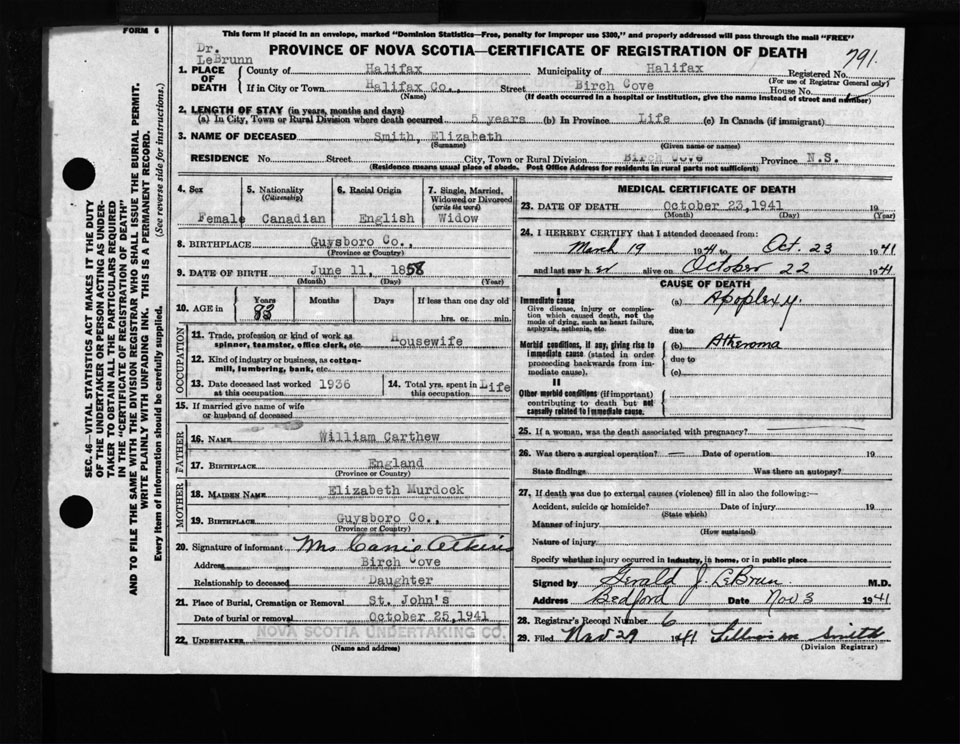 FORM 6
This form if placed in an envelope, marked "Dominion Statistics—Free, penalty for improper use $300," and properly addressed will pass through the mail "FREE"
Dr.
LeBrunn
PROVINCE OF NOVA SCOTIA—CERTIFICATE OF REGISTRATION OF DEATH
791
1. PLACE OF DEATH { County of Halifax Municipality of Halifax Registered No.
(For use of Registrar General only)
If in City or Town Halifax Co., Street Birch Cove House No.
(Name) (If death occurred in a hospital or institution, give the name instead of street and number)
2. LENGTH OF STAY (in years, months and days)
(a) In City, Town or Rural Division where death occurred 5 years (b) In Province Life (c) In Canada (if immigrant)
3. NAME OF DECEASED Smith, Elizabeth
(Surname) (Given name or names)
RESIDENCE No. Street City, Town or Rural Division Birch Cove Province N.S.
(Residence means usual place of abode. Post Office Address for residents in rural parts not sufficient)
4. Sex 5. Nationality (Citizenship) 6. Racial Origin 7. Single, Married, Widowed or Divorced (write the word)
Female Canadian English Widow
8. BIRTHPLACE Guysboro Co.,
(Province or Country)
9. DATE OF BIRTH June 11, 1858
(Month) (Day) (Year)
10. AGE in Years Months Days If less than one day old
83 hrs. or min.
OCCUPATION
11. Trade, profession or kind of work as spinner, teamster, office clerk, etc. Housewife
12. Kind of industry or business, as cotton-mill, lumbering, bank, etc.
13. Date deceased last worked at this occupation 1936 14. Total yrs. spent in this occupation Life
15. If married give name of wife or husband of deceased
FATHER
16. NAME William Carthew
17. BIRTHPLACE England
(Province or Country)
MOTHER
18. MAIDEN NAME Elizabeth Murdock
19. BIRTHPLACE Guysboro Co.,
(Province or Country)
20. Signature of informant Mrs Canie Atkins
Address Birch Cove
Relationship to deceased Daughter
21. Place of Burial, Cremation or Removal St. John's
Date of burial or removal October 25, 1941
22. UNDERTAKER NOVA SCOTIA UNDERTAKING CO.
(Name and address)
MEDICAL CERTIFICATE OF DEATH
23. DATE OF DEATH October 23, 1941 19
(Month) (Day) (Year)
24. I HEREBY CERTIFY that I attended deceased from:
March 19 1941 to Oct. 23 1941
and last saw h er alive on October 22 1941
CAUSE OF DEATH
I
Immediate cause (a) Apoplexy.
Give disease, injury or complication which caused death, not the mode of dying, such as heart failure, asphyxia, asthenia, etc.
due to
Morbid conditions, if any, giving rise to immediate cause (stated in order proceeding backwards from immediate cause).
(b) Atheroma
due to
(c)
II
Other morbid conditions (if important) contributing to death but not causally related to immediate cause.
25. If a woman, was the death associated with pregnancy?
26. Was there a surgical operation? — Date of operation 19
State findings Was there an autopsy?
27. If death was due to external causes (violence) fill in also the following:—
Accident, suicide or homicide? Date of injury 19
(State which)
Manner of injury
(How sustained)
Nature of injury
Specify whether injury occurred in industry, in home, or in public place
Signed by Gerald J. LeBrun M.D.
Address Bedford Date Nov 3 1941
28. Registrar's Record Number 6
29. Filed Nov 29 1941 Lillian M Smith
(Division Registrar)
SEC. 46—VITAL STATISTICS ACT MAKES IT THE DUTY
OF THE UNDERTAKER OR PERSON ACTING AS UNDER-
TAKER TO OBTAIN ALL THE PARTICULARS REQUIRED
IN THE "CERTIFICATE OF REGISTRATION OF DEATH"
AND TO FILE THE SAME WITH THE DIVISION REGISTRAR WHO SHALL ISSUE THE BURIAL PERMIT.
WRITE PLAINLY WITH UNFADING INK. THIS IS A PERMANENT RECORD.
Every item of information should be carefully supplied. (See reverse side for instructions.)